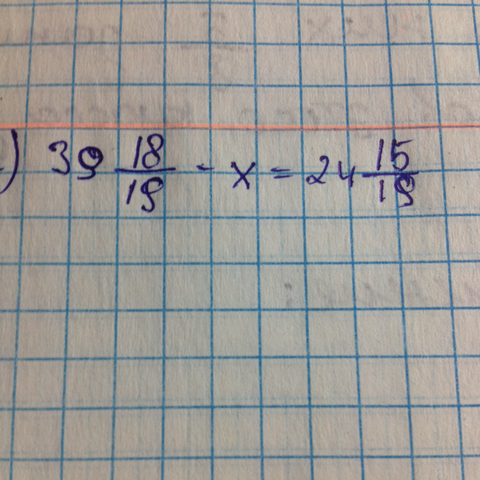 ) 39 18/19 - x = 24 15/19